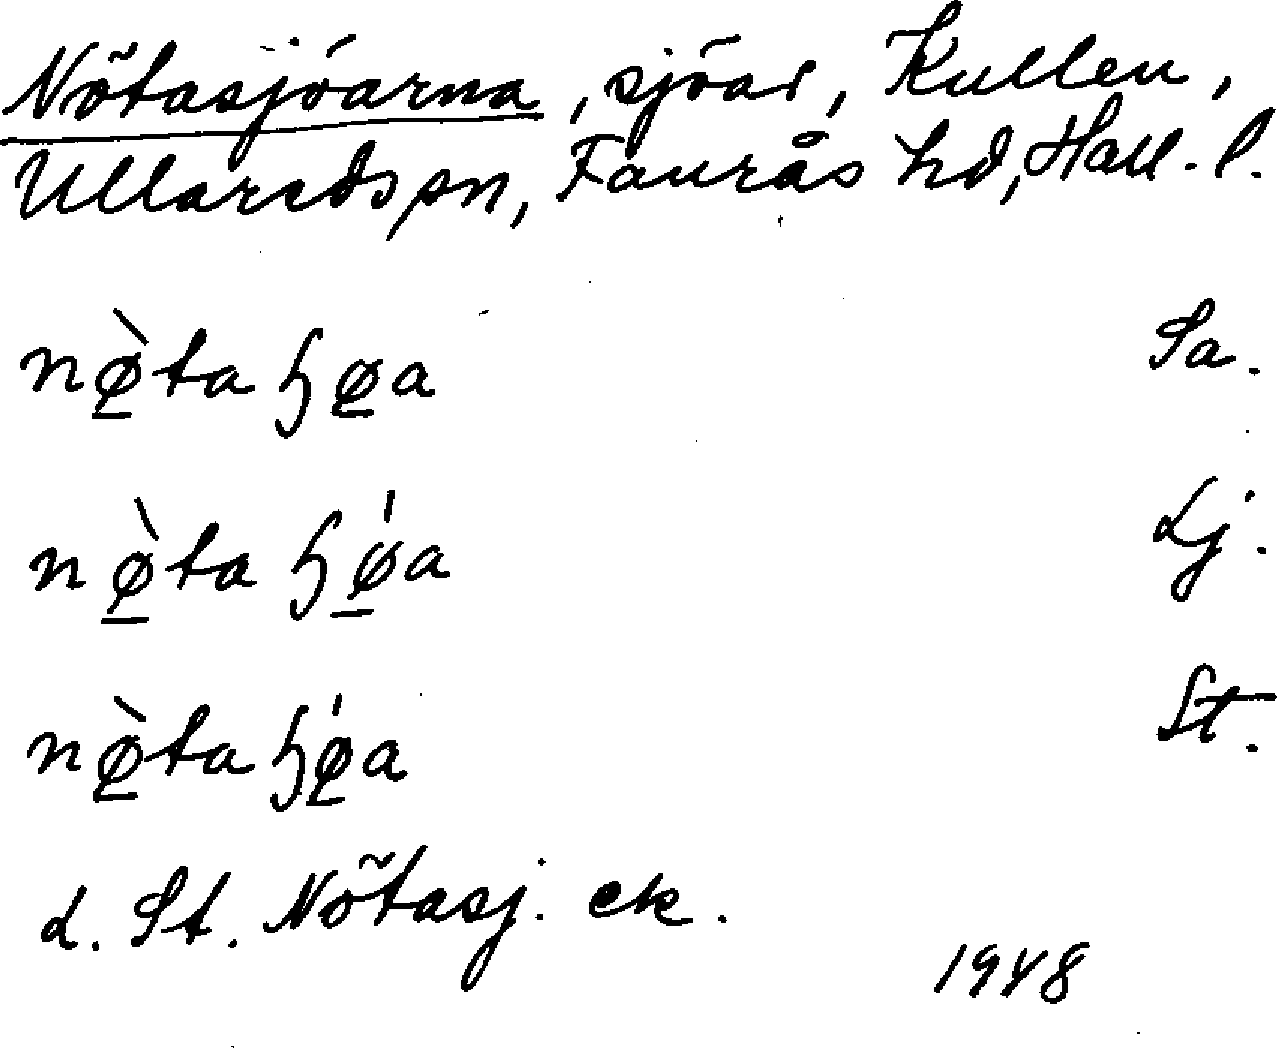 Nötasjöarna, sjöar, Kullen,
Ullareds sn, Faurås hd, Hall. l.
nø̲̀ta ɧø̲a Sa.
nø̲̀ta ɧǿ̲a Lj.
nø̲̀ta ɧǿ̲a St.
L. St. Nötasj. ek.
1948